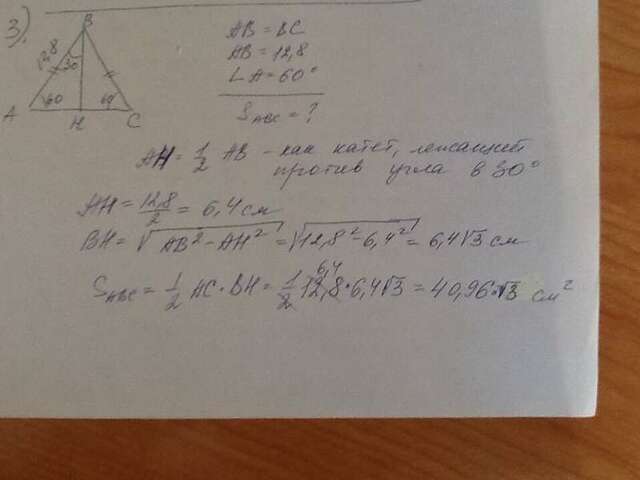 3).
B
12,8
30
60
60
A
H
C
AB = BC
AB = 12,8
∠A = 60°
S ABC = ?
AH = 1/2 AB - как катет, лежащий
против угла в 30°
AH = 12,8/2 = 6,4 см
BH = √AB² - AH² = √12,8² - 6,4² = 6,4√3 см
6,4
S ABC = 1/2 AC · BH = 1/2 12,8 · 6,4√3 = 40,96·√3 см²